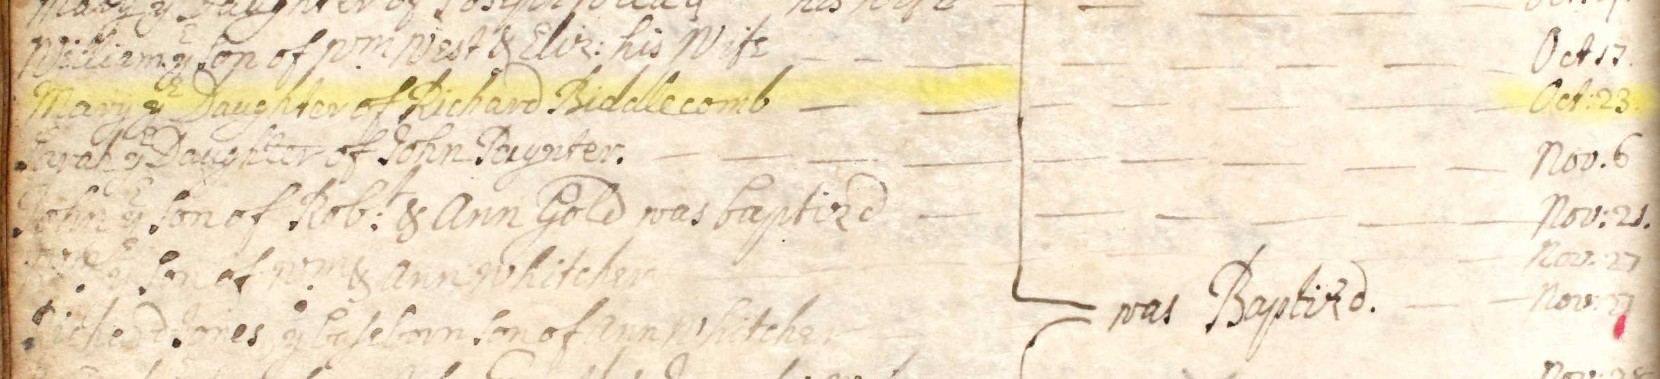 Mary ye Daughter of Joseph his Wife Oct:
William ye Son of Wm West & Eliz: his Wife Oct 17.
Mary ye Daughter of Richard Biddlecomb Oct: 23.
Sarah ye Daughter of John Paynter. Nov. 6
John ye Son of Robt: & Ann Gold was baptiz'd Nov: 21.
ye Son of Wm & Ann Whitcher Nov: 27
Jones ye baseborn son of Ann Whitcher was Baptiz'd. Nov: 27
Nov: 28